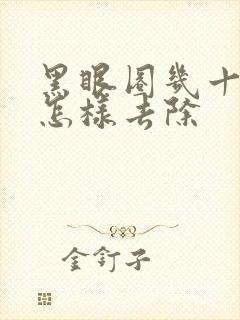 黑眼圈几十
怎样去除
金钉子